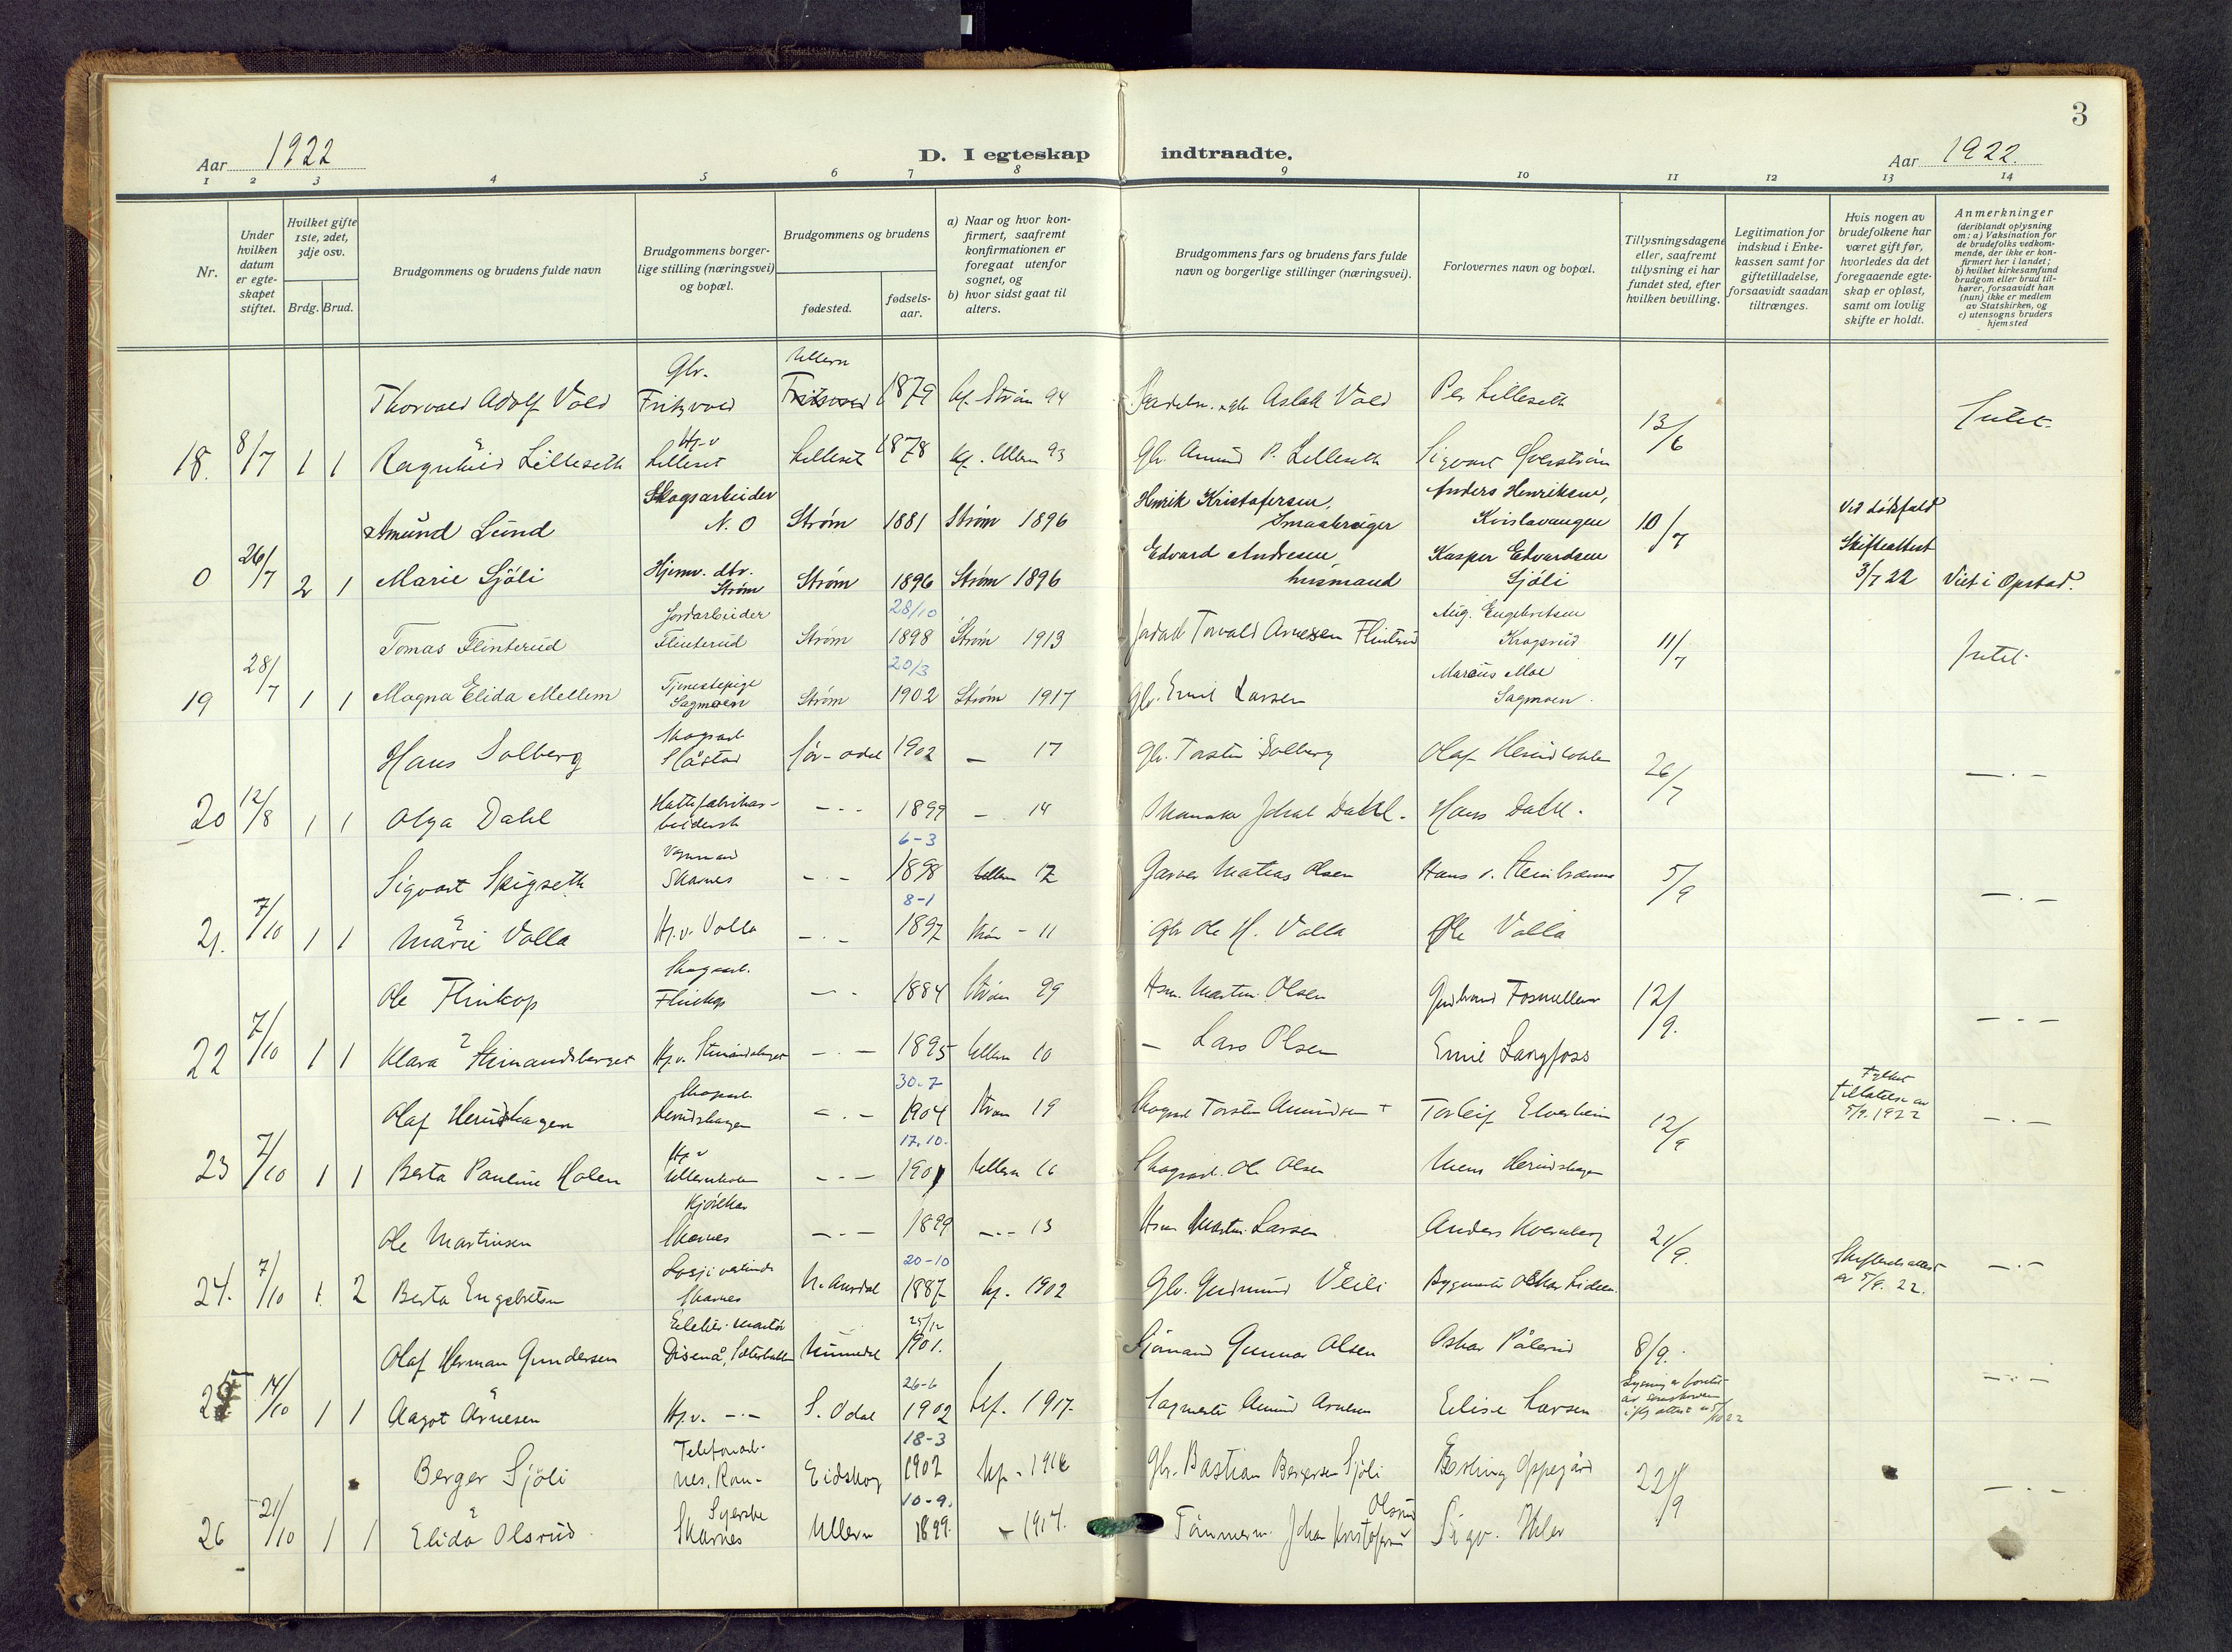 3
Aar 1922
D. I egteskap indtraadte.
Aar 1922.
1 2 3 4 5 6 7 8 9 10 11 12 13 14
Nr.
Under hvilken datum er egteskapet stiftet.
Hvilket gifte 1ste, 2det, 3dje osv.
Brdg. Brud.
Brudgommens og brudens fulde navn
Brudgommens borgerlige stilling (næringsvei) og bopæl.
Brudgommens og brudens
fødested.
fødselsaar.
a) Naar og hvor konfirmert, saafremt konfirmationen er foregaat utenfor sognet, og
b) hvor sidst gaat til alters.
Brudgommens fars og brudens fars fulde navn og borgerlige stillinger (næringsvei).
Forlovernes navn og bopæl.
Tillysningsdagene eller, saafremt tillysning ei har fundet sted, efter hvilken bevilling.
Legitimation for indskud i Enkekassen samt for giftetilladelse, forsaavidt saadan tiltrænges.
Hvis nogen av brudefolkene har været gift før, hvorledes da det foregaaende egteskap er opløst, samt om lovlig skifte er holdt.
Anmerkninger (deriblandt oplysning om: a) Vaksination for de brudefolks vedkommende, der ikke er konfirmert her i landet; b) hvilket kirkesamfund brudgom eller brud tilhører, forsaavidt han (hun) ikke er medlem av Statskirken, og c) utensogns bruders hjemsted
Thorvald Adolf Vold Gbr. Fritzvold Ullern 1879 kf. Strøm 94 gbr. Aslak Vold Per Lilleseth
18. 8/7 1 1 Ragnhild Lilleseth Hj. v. Lilleset Lilleset 1878 kf. Ullern 93 Gbr. Amund P. Lilleseth Sigvart 13/6 Intet.
Amund Lund Skogsarbeider N. O Strøm 1881 Strøm 1896 Henrik Kristofersen, Smaabruger Anders Henriksen, Kvislavangen 10/7 Ved dødsfald
0 26/7 2 1 Marie Sjöli Hjemv. dtr. Strøm Strøm 1896 Strøm 1896 Edvard Andresen, husmand Kasper Edvardsen Sjöli Skifteattest 3/7 22 Viet i Opstad.
Tomas Flinterud Jordarbeider Flinterud Strøm 28/10 1898 Strøm 1913 Torvald Arnesen Flintrud Aug. Engebretsen Krogsrud 11/7 Intet.
19 28/7 1 1 Magna Elida Mellem Tjenestepige Sagmoen Strøm 20/3 1902 Strøm 1917 Gbr. Emil Larsen Marius Moe Sagmoen.
Hans Solberg Skogsarb. Slåstad Sør-odal 1902 — 17 Gbr. Torsten Solberg Olaf 26/7 —.—
20 12/8 1 1 Olga Dahl Hattefabrikarbeidersk —.— 1899 — 14 Johal Dahl. Hans Dahl.
Sigvart Spigseth Skarnes —.— 6-3 1898 Ullern 12 Garver Matias Olsen Hans 5/9 —.—
21. 7/10 1 1 Marie Volla Hj.v. Volla —.— 8-1 1897 Strøm - 11 Gbr Ole H. Volla Ole Volla
Ole Flinkop Skogsarb. Flinkop —.— 1884 Strøm 99 Hsm. Martin Olsen 12/9. —.—
22 7/10 1 1 Klara Steinandsberget Hj.v. Steinandsberget —.— 1895 Ullern 10 — Lars Olsen Emil Langfoss
Olaf Herudshagen Skogsarb. Herudshagen —.— 30-7 1904 Strøm 19 Skogsarb Torsten Amundsen Torleif Elverheim 12/9 Fylkets tilladelse av 5/9. 1922 —.—
23 7/10 1 1 Berta Pauline Holen Hj v Ullernholen —.— 17.10. 1901 Ullern 16 Skogsarb. Ole Olsen Herudshagen
Ole Martinsen Skarnes —.— 1899 —.— 13 Hsm Martin Larsen Anders Kvernberg 21/9.
24. 7/10 1. 2 Berta Engebretsen Skarnes 20-10 1887 kf. 1902 Gbr. Gudmund Veili Oskar Lideen. av 5/9. 22. —.—
Olaf Herman Gundersen Disenå, 25/12 1901. Sjømand Gunnar Olsen Oskar Pålerud 8/9.
25 14/10 1 1 Aagot Arnesen Hj.v. —.— S. Odal 26-6 1902 kf. 1917. Sagmester Amund Arnesen Elise Larsen —.—
Berger Sjöli Telefonarb. Eidskog 18-3 1902 kf. - 1916 Gbr. Bastian Bergersen Sjöli Erling Oppegård 22/9 —.—
26 21/10 1 1 Elida Olsrud. Syerske Skarnes Ullern 10-9. 1899. — 1914. Tømmerm. Johan Kristofersen Olsrud Sigv.